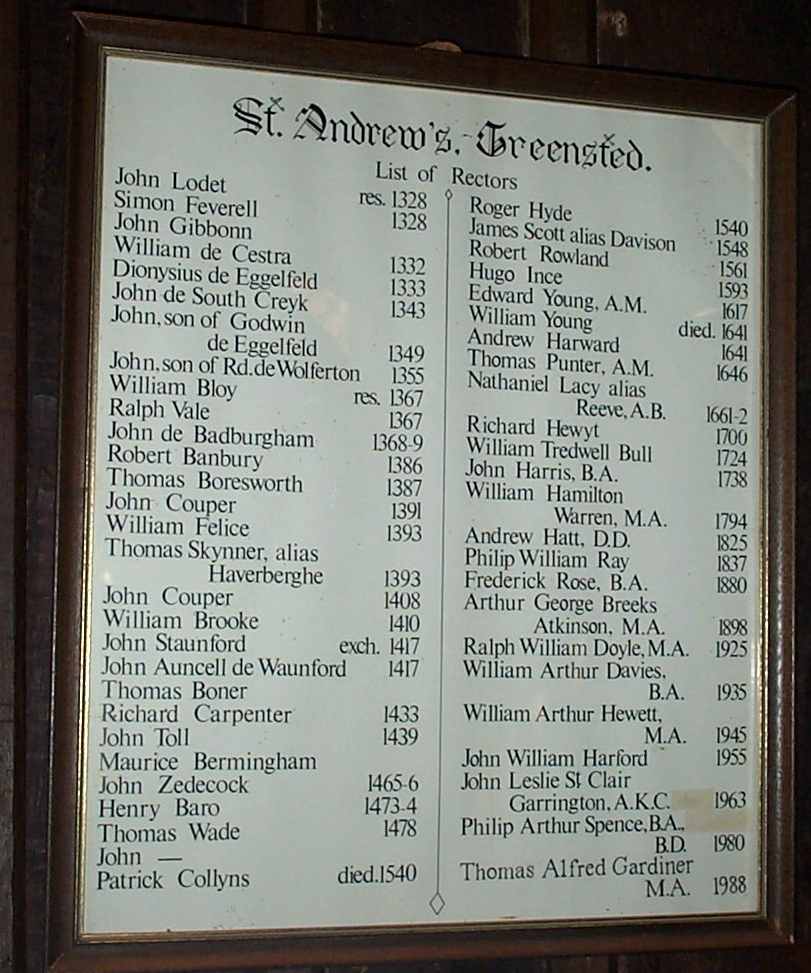 St. Andrew's, Greensted.
List of Rectors
John Lodet res. 1328
Simon Feverell 1328
John Gibbonn
William de Cestra 1332
Dionysius de Eggelfeld 1333
John de South Creyk 1343
John, son of Godwin
de Eggelfeld 1349
John, son of Rd. de Wolferton 1355
William Bloy res. 1367
Ralph Vale 1367
John de Badburgham 1368-9
Robert Banbury 1386
Thomas Boresworth 1387
John Couper 1391
William Felice 1393
Thomas Skynner, alias
Haverberghe 1393
John Couper 1408
William Brooke 1410
John Staunford exch. 1417
John Auncell de Waunford 1417
Thomas Boner
Richard Carpenter 1433
John Toll 1439
Maurice Bermingham
John Zedecock 1465-6
Henry Baro 1473-4
Thomas Wade 1478
John —
Patrick Collyns died.1540
Roger Hyde 1540
James Scott alias Davison 1548
Robert Rowland 1561
Hugo Ince 1593
Edward Young, A.M. 1617
William Young died. 1641
Andrew Harward 1641
Thomas Punter, A.M. 1646
Nathaniel Lacy alias
Reeve, A.B. 1661-2
Richard Hewyt 1700
William Tredwell Bull 1724
John Harris, B.A. 1738
William Hamilton
Warren, M.A. 1794
Andrew Hatt, D.D. 1825
Philip William Ray 1837
Frederick Rose, B.A. 1880
Arthur George Breeks
Atkinson, M.A. 1898
Ralph William Doyle, M.A. 1925
William Arthur Davies,
B.A. 1935
William Arthur Hewett,
M.A. 1945
John William Harford 1955
John Leslie St Clair
Garrington, A.K.C. 1963
Philip Arthur Spence, B.A.,
B.D. 1980
Thomas Alfred Gardiner
M.A. 1988